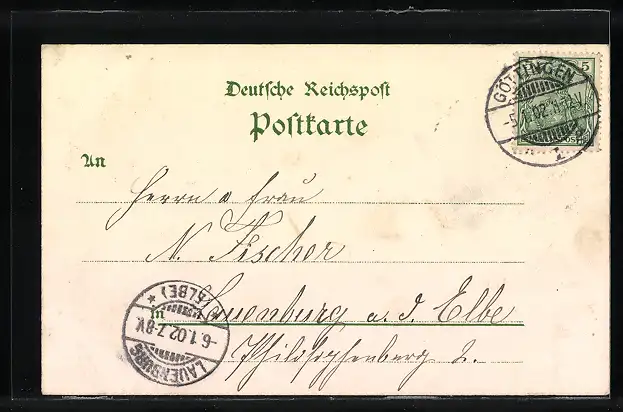 Deutsche Reichspost
Postkarte
An
Herrn u Frau
N. Fischer
in Lauenburg a. d. Elbe
Philosophenberg 2.
GÖTTINGEN
-5.1.02.11-12V.
1.
5
LAUENBURG
-6.1.02.7-8V.
* (ELBE) *